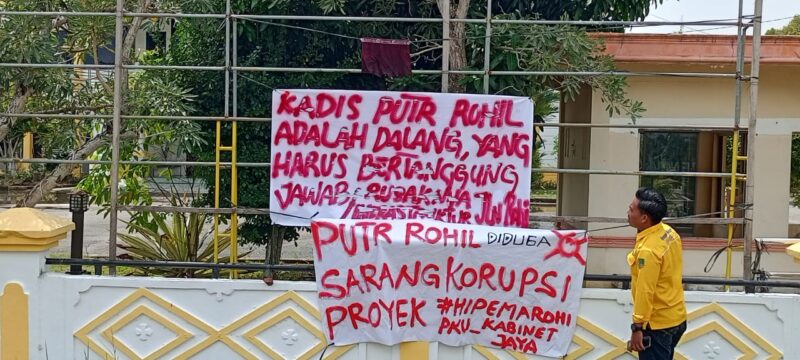 KADIS PUTR ROHIL
ADALAH DALANG, YANG
HARUS BERTANGGUNG
JAWAB RUSAKNYA
INFRASTRUKTUR
PUTR ROHIL DIDUGA
SARANG KORUPSI
PROYEK #HIPEMAROHI
PKU_KABINET
JAYA